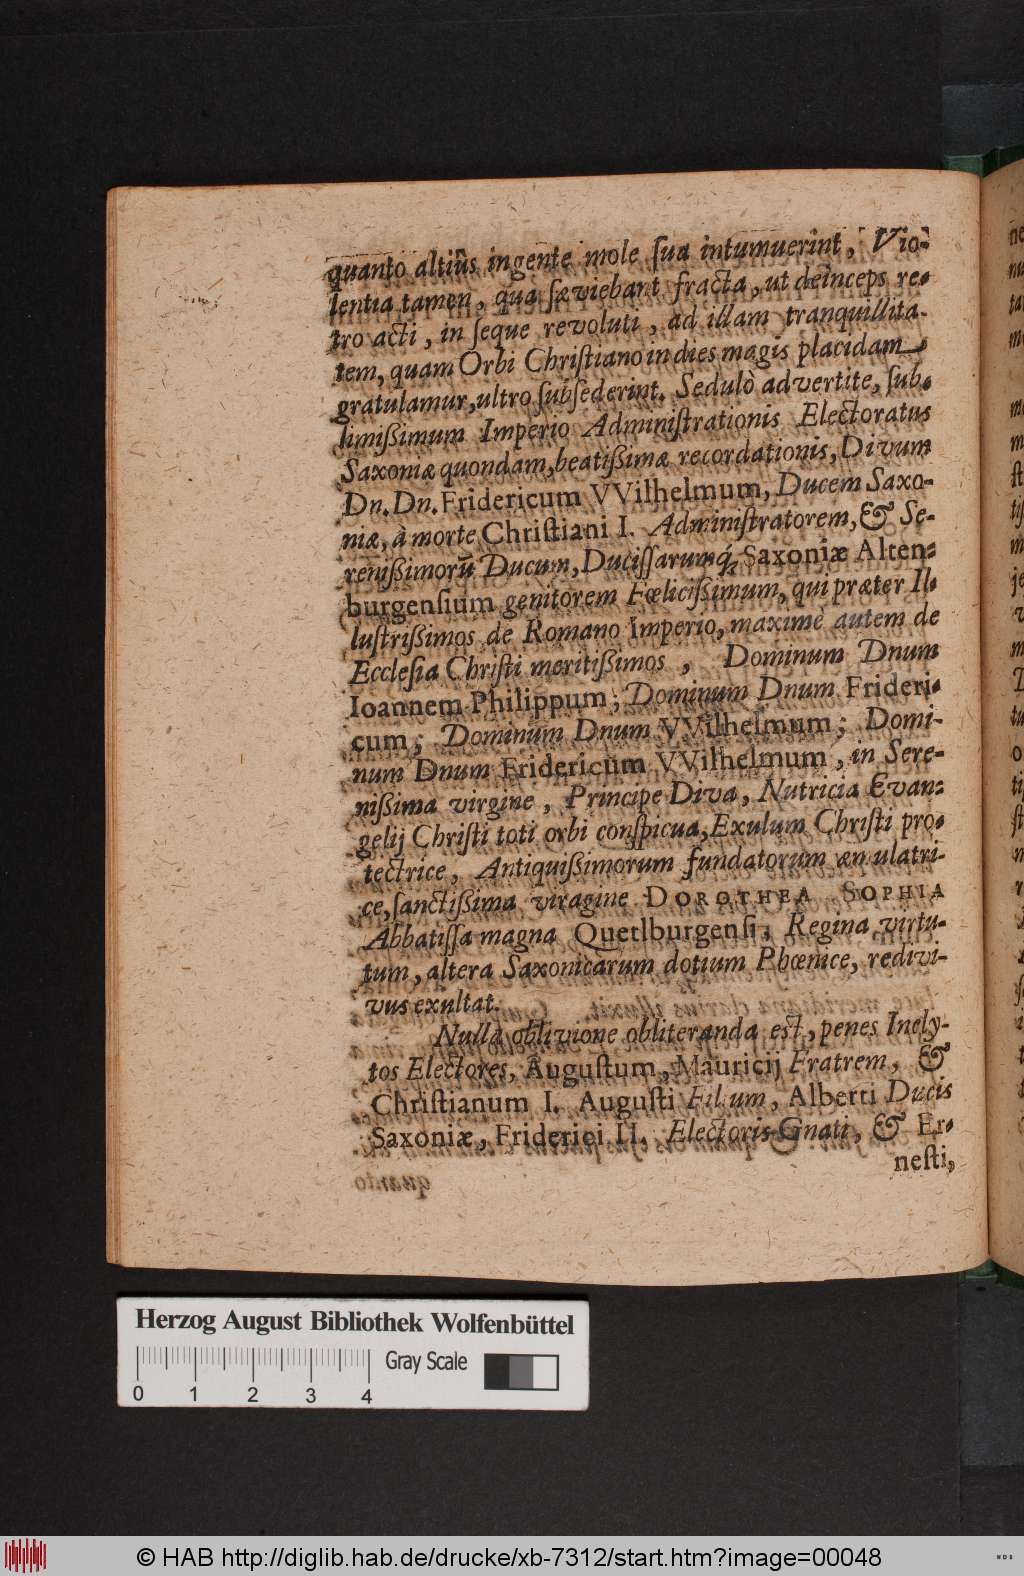 quanto altiùs ingente mole ſua intumuerint, Vio-
lentia tamen, qua ſæviebant fracta, ut deinceps re-
tro acti, in ſeque revoluti, ad illam tranquillita-
tem, quam Orbi Chriſtiano in dies magis placidam
gratulamur, ultro ſubſederint. Sedulò advertite, ſub-
limißimum Imperio Adminiſtrationis Electoratus
Saxoniæ quondam, beatißimæ recordationis, Divum
Dn. Dn. Fridericum VVilhelmum, Ducem Saxo-
niæ, à morte Chriſtiani I. Adminiſtratorem, & Se-
renißimorū Ducum, Duciſſarumq́; Saxoniæ Alten-
burgenſium genitorem Fœlicißimum, qui præter Il-
luſtrißimos de Romano Imperio, maximè autem de
Eccleſia Chriſti meritißimos, Dominum Dnum
Ioannem Philippum; Dominum Dnum Frideri-
cum; Dominum Dnum VVilhelmum; Domi-
num Dnum Fridericum VVilhelmum, in Sere-
nißima virgine, Principe Diva, Nutricia Evan-
gelij Chriſti toti orbi conſpicua, Exulum Chriſti pro-
tectrice, Antiquißimorum fundatorum æmulatri-
ce, ſanctißima viragine DOROTHEA SOPHIA
Abbatiſſa magna Quetlburgenſi, Regina virtu-
tum, altera Saxonicarum dotium Phœnice, redivi-
vus exultat.
Nullâ oblivione obliteranda est, penes Inely-
tos Electores, Auguſtum, Mauricij Fratrem, &
Chriſtianum I. Auguſti Filium, Alberti Ducis
Saxoniæ, Friderici II. Electoris Gnati, & Er-
neſti,
Herzog August Bibliothek Wolfenbüttel
Gray Scale
0 1 2 3 4
© HAB http://diglib.hab.de/drucke/xb-7312/start.htm?image=00048